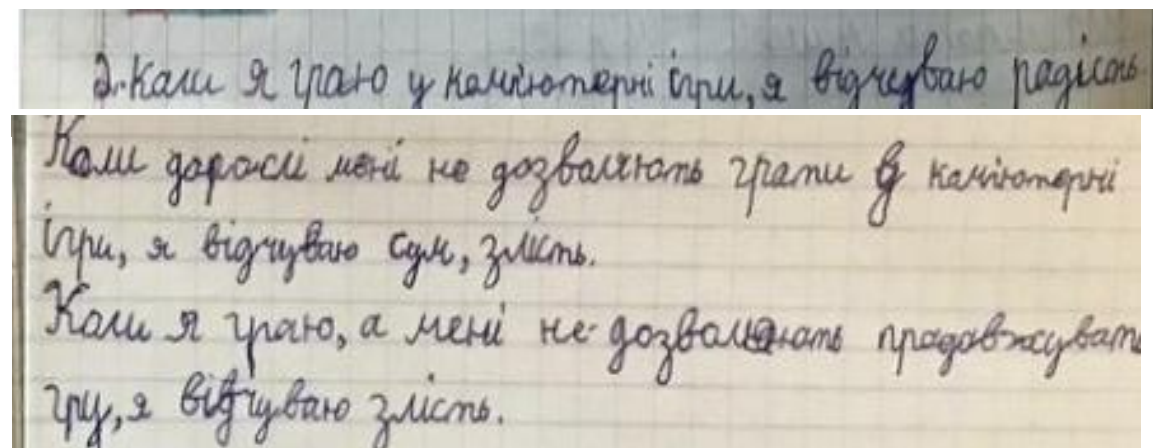 2. Коли я граю у комп'ютерні ігри, я відчуваю радість
Коли дорослі мені не дозволяють грати в комп'ютерні
ігри, я відчуваю сум, злість.
Коли я граю, а мені не дозволяють продовжувать
гру, я відчуваю злість.